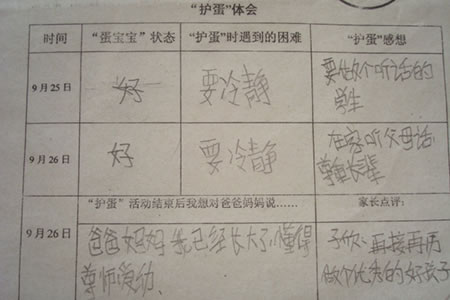 “护蛋”体会
时间 “蛋宝宝”状态 “护蛋”时遇到的困难 “护蛋”感想
9月25日 好 要冷静 要做个听话的
学生
9月26日 好 要冷静 在家听父母话
尊重长辈
“护蛋”活动结束后我想对爸爸妈妈说…… 家长点评：
9月26日 爸爸妈妈我已经长大了，懂得
尊师爱幼、
子欣：再接再厉
做个优秀的好孩子